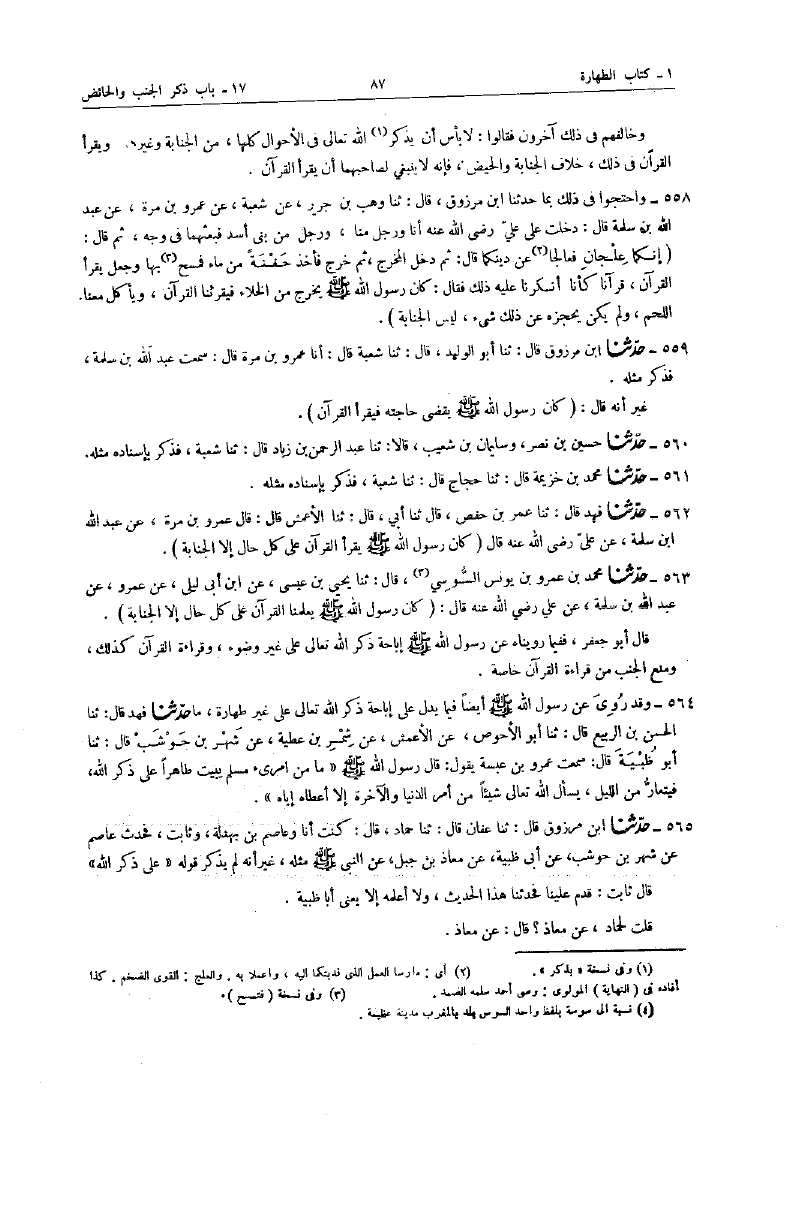 ١ ـ كتاب الطهارة ٨٧ ١٧ ـ باب ذكر الجنب والحائض
وخالفهم فى ذلك آخرون فقالوا : لا بأس أن يذكر(١) الله تعالى فى الأحوال كلها ، من الجنابة وغيرها ، ويقرأ
القرآن فى ذلك ، خلاف الجنابة والحيض ، فإنه لا ينبغي لصاحبهما أن يقرأ القرآن .
٥٥٨ ـ واحتجوا فى ذلك بما حدثنا ابن مرزوق ، قال : ثنا وهب بن جرير ، عن شعبة ، عن عمرو بن مرة ، عن عبد
الله بن سلمة قال : دخلت على عليّ رضى الله عنه أنا ورجل منا ، ورجل من بنى أسد فبعثهما فى وجه ، ثم قال :
( إنـكما عِلْـجانِ فعالجا(٢) عن دينكما قال : ثم دخل المخرج ، ثم خرج فأخذ حَـفْـنَـةً من ماء فمسح(٣) بها وجعل يقرأ
القرآن ، قرآنا كأنا أنـكرنا عليه ذلك فقال : كان رسول الله ﷺ يخرج من الخلاء فيقرئنا القرآن ، ويأكل معنا.
اللحم ، ولم يكن يحجزه عن ذلك شىء ، ليس الجنابة ) .
٥٥٩ ـ حدّثنا ابن مرزوق قال : ثنا أبو الوليد ، قال : ثنا شعبة قال : أنا عمرو بن مرة قال : سمعت عبد الله بن سلمة ،
فذكر مثله .
غير أنه قال : ( كان رسول الله ﷺ يقضى حاجته فيقرأ القرآن ) .
٥٦٠ ـ حدّثنا حسين بن نصر ، وسليمان بن شعيب ، قالا : ثنا عبد الرحمن بن زياد قال : ثنا شعبة ، فذكر بإسناده مثله.
٥٦١ ـ حدّثنا محمد بن خزيمة قال : ثنا حجاج قال : ثنا شعبة ، فذكر بإسناده مثله .
٥٦٢ ـ حدّثنا فهد قال : ثنا عمر بن حفص ، قال ثنا أبي ، قال : ثنا الأعمش قال : قال عمرو بن مرة ، عن عبد الله
ابن سلمة ، عن عليّ رضى الله عنه قال ( كان رسول الله ﷺ يقرأ القرآن على كل حال إلا الجنابة ) .
٥٦٣ ـ حدّثنا محمد بن عمرو بن يونس السُّوسي(٣) ، قال : ثنا يحيى بن عيسى ، عن ابن أبى ليلى ، عن عمرو ، عن
عبد الله بن سلمة ، عن علي رضي الله عنه قال : ( كان رسول الله ﷺ يعلمنا القرآن على كل حال إلا الجنابة ) .
قال أبو جعفر ، ففيما رويناه عن رسول الله ﷺ إباحة ذكر الله تعالى على غير وضوء ، وقراءة القرآن كذلك ،
ومنع الجنب من قراءة القرآن خاصة .
٥٦٤ ـ وقد رُوِىَ عن رسول الله ﷺ أيضاً فيما يدل على إباحة ذكر الله تعالى على غير طهارة ، ما حدّثنا فهد قال: ثنا
الحسن بن الربيع قال : ثنا أبو الأحوص ، عن الأعمش ، عن شِمْـرِ بن عطية ، عن شَهْـر بن حَـوْشَب قال : ثنا
أبو ظَبْـيَـة قال: سمعت عمرو بن عبسة يقول: قال رسول الله ﷺ « ما من امرىء مسلم يبيت طاهراً على ذكر الله،
فيتعارُّ من الليل ، يسأل الله تعالى شيئاً من أمر الدنيا والآخرة إلا أعطاه إياه » .
٥٦٥ ـ حدّثنا ابن مرزوق قال : ثنا عفان قال : ثنا حماد ، قال : كنت أنا وعاصم بن بهدلة ، وثابت ، فحدث عاصم
عن شهر بن حوشب، عن أبى ظبية، عن معاذ بن جبل، عن النبى ﷺ مثله ، غير أنه لم يذكر قوله « على ذكر الله»
قال ثابت : قدم علينا فحدثنا هذا الحديث ، ولا أعلمه إلا يعنى أبا ظبية .
قلت لحماد ، عن معاذ ؟ قال : عن معاذ .
(١) وفى نسخة « بذكر » . (٢) أى : مارسا العمل الذى ندبتكما اليه ، واعملا به . والعلج : القوى الضخم . كذا
أفاده فى ( النهاية ) المولوى : وصى أحمد سلمه الصمد . (٣) وفى نسخة ( فتمسح ) .
(٤) نسبة الى سوسة بلفظ واحد السوس بلد بالمغرب مدينة عظيمة .